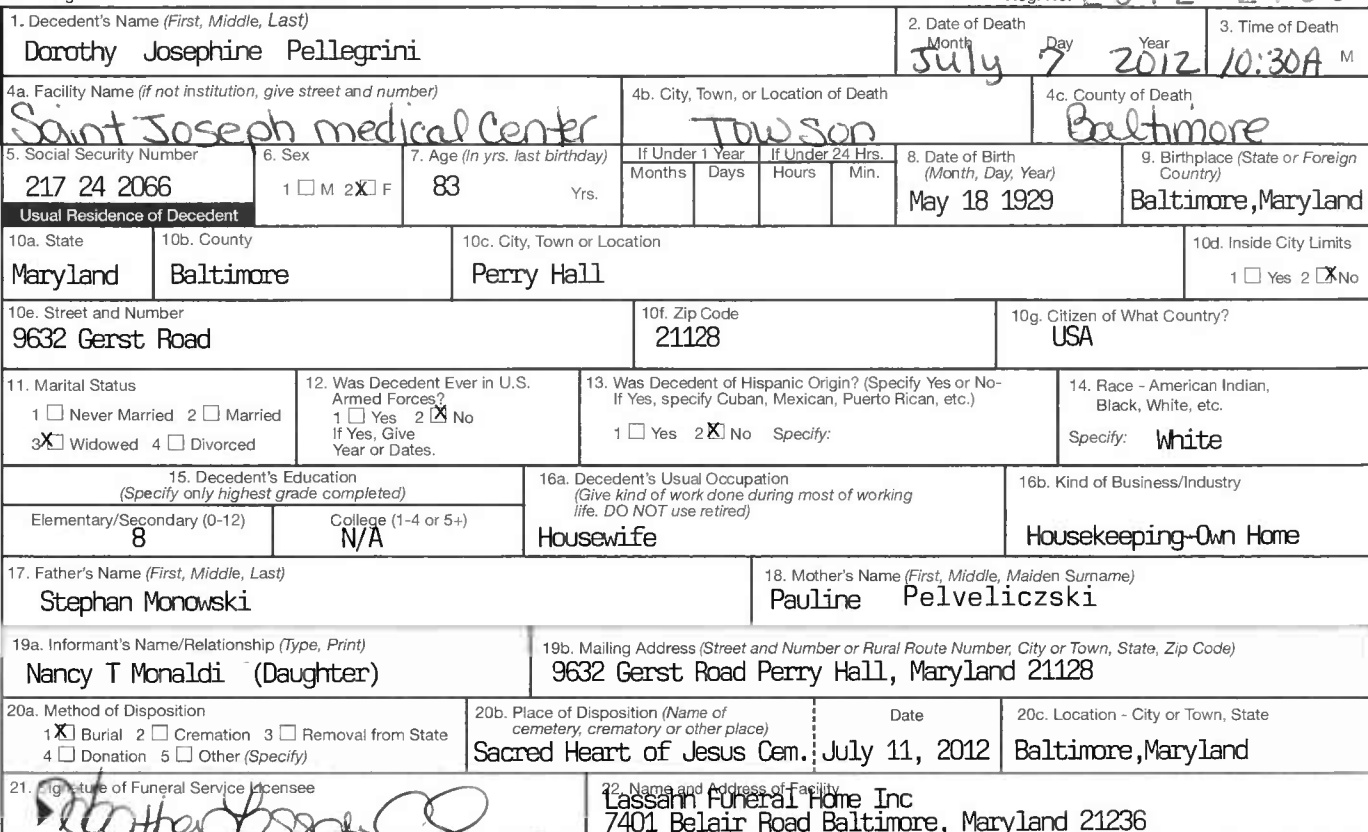 1. Decedent's Name (First, Middle, Last)
Dorothy Josephine Pellegrini
2. Date of Death
Month Day Year
July 7 2012
3. Time of Death
10:30A M
4a. Facility Name (if not institution, give street and number)
Saint Joseph medical Center
4b. City, Town, or Location of Death
Towson
4c. County of Death
Baltimore
5. Social Security Number
217 24 2066
6. Sex
1 ☐ M 2 ☒ F
7. Age (In yrs. last birthday)
83 Yrs.
If Under 1 Year
Months Days
If Under 24 Hrs.
Hours Min.
8. Date of Birth
(Month, Day, Year)
May 18 1929
9. Birthplace (State or Foreign
Country)
Baltimore,Maryland
Usual Residence of Decedent
10a. State
Maryland
10b. County
Baltimore
10c. City, Town or Location
Perry Hall
10d. Inside City Limits
1 ☐ Yes 2 ☒ No
10e. Street and Number
9632 Gerst Road
10f. Zip Code
21128
10g. Citizen of What Country?
USA
11. Marital Status
1 ☐ Never Married 2 ☐ Married
3 ☒ Widowed 4 ☐ Divorced
12. Was Decedent Ever in U.S.
Armed Forces?
1 ☐ Yes 2 ☒ No
If Yes, Give
Year or Dates.
13. Was Decedent of Hispanic Origin? (Specify Yes or No-
If Yes, specify Cuban, Mexican, Puerto Rican, etc.)
1 ☐ Yes 2 ☒ No Specify:
14. Race - American Indian,
Black, White, etc.
Specify: White
15. Decedent's Education
(Specify only highest grade completed)
Elementary/Secondary (0-12)
8
College (1-4 or 5+)
N/A
16a. Decedent's Usual Occupation
(Give kind of work done during most of working
life. DO NOT use retired)
Housewife
16b. Kind of Business/Industry
Housekeeping-Own Home
17. Father's Name (First, Middle, Last)
Stephan Monowski
18. Mother's Name (First, Middle, Maiden Surname)
Pauline Pelveliczski
19a. Informant's Name/Relationship (Type, Print)
Nancy T Monaldi (Daughter)
19b. Mailing Address (Street and Number or Rural Route Number, City or Town, State, Zip Code)
9632 Gerst Road Perry Hall, Maryland 21128
20a. Method of Disposition
1 ☒ Burial 2 ☐ Cremation 3 ☐ Removal from State
4 ☐ Donation 5 ☐ Other (Specify)
20b. Place of Disposition (Name of
cemetery, crematory or other place)
Sacred Heart of Jesus Cem.
Date
July 11, 2012
20c. Location - City or Town, State
Baltimore,Maryland
21. Signature of Funeral Service Licensee
22. Name and Address of Facility
Lassahn Funeral Home Inc
7401 Belair Road Baltimore, Maryland 21236